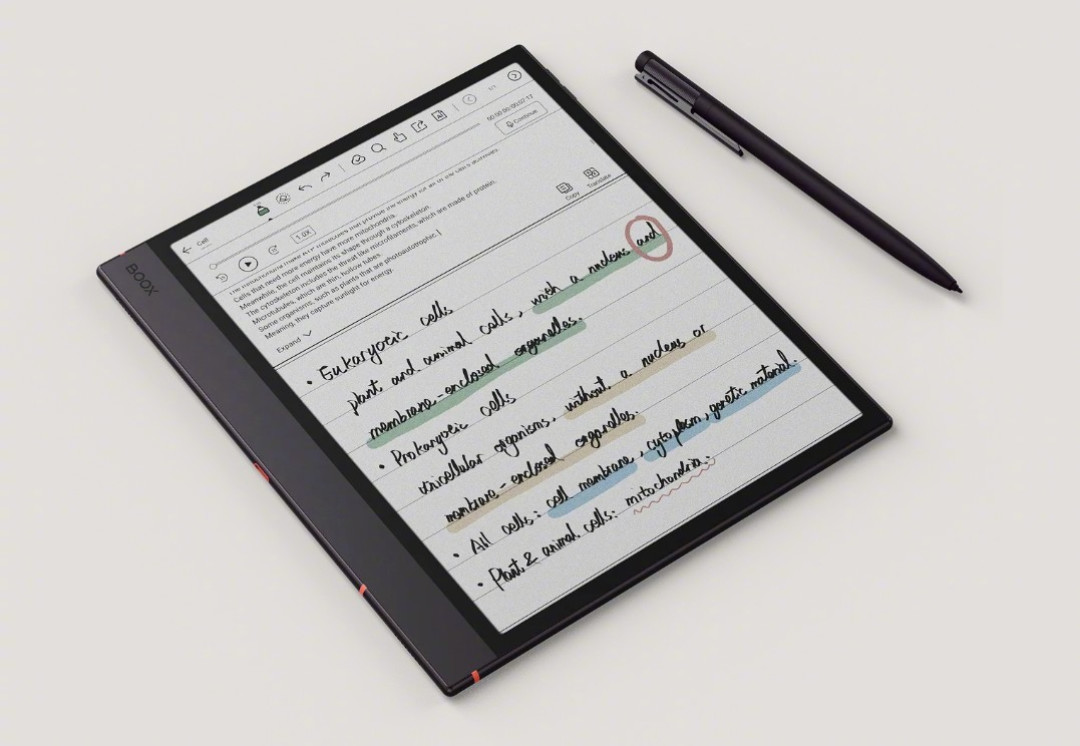 BOOX
Cell
00:00:00/00:07:17
Continue
1.0X
Cells that need more energy have more mitochondria.
Meanwhile, the cell maintains its shape through a cytoskeleton.
The cytoskeleton includes the threat like microfilaments, which are made of protein.
Microtubules, which are thin, hollow tubes.
Some organisms, such as plants that are photoautotrophic,
Meaning, they capture sunlight for energy.
Expand
Copy
Translate
• Eukaryotic cells
plant and animal cells, with a nucleus and
membrane-enclosed organelles.
• Prokaryotic cells
unicellular organisms, without a nucleus or
membrane-enclosed organelles.
• All cells: cell membrane, cytoplasm, genetic material.
• Plant & animal cells: mitochondria.